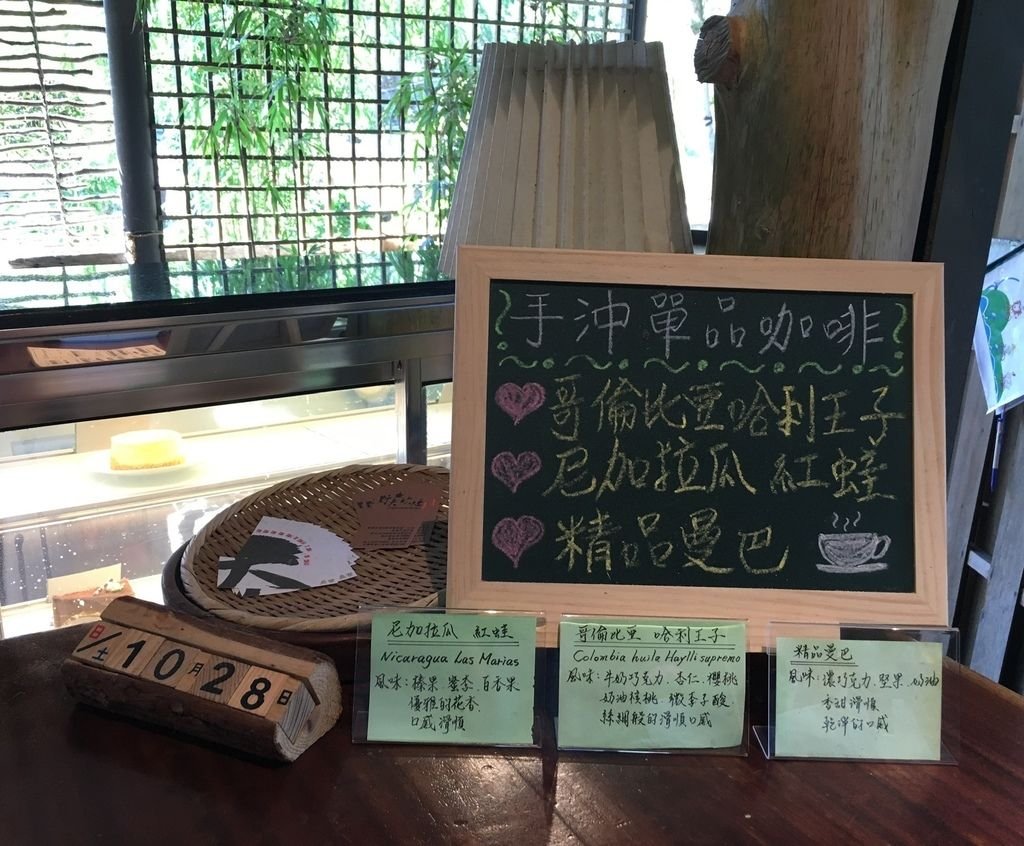 手沖單品咖啡
哥倫比亞哈利王子
尼加拉瓜 紅蛙
精品曼巴
日/土 10月28日
尼加拉瓜 紅蛙
Nicaragua Las Marias
風味:榛果.蜜李.百香果
優雅的花香
口感滑順
哥倫比亞 哈利王子
Colombia huila Haylli supremo
風味:牛奶巧克力.杏仁.櫻桃
奶油核桃.微季子酸
絲綢般的滑順口感
精品曼巴
風味:濃巧克力.堅果.奶油
香甜滑順
乾淨的口感